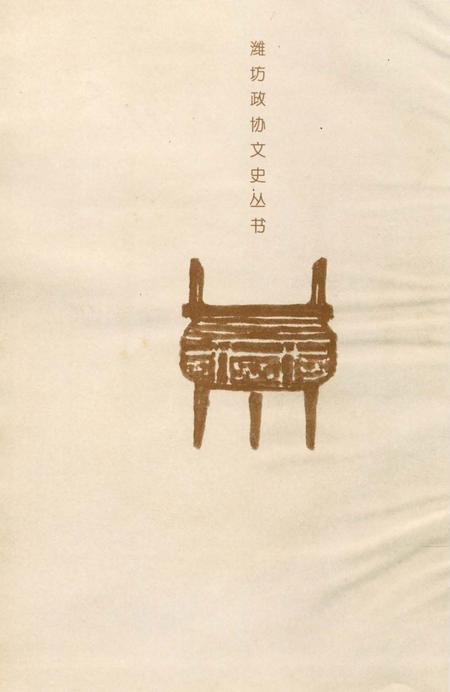 潍坊政协文史丛书